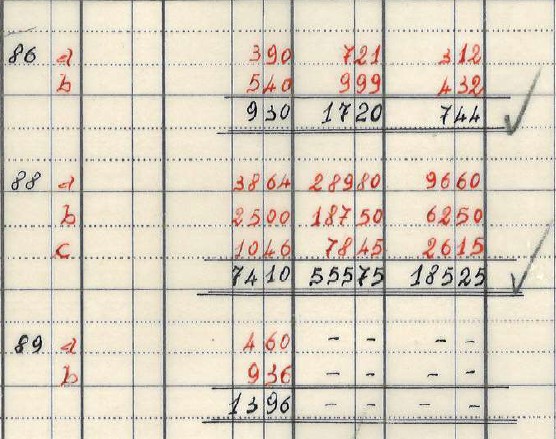 86 a 390 721 312
b 540 999 432
930 1720 744
88 a 3864 28980 9660
b 2500 18750 6250
c 1046 7845 2615
7410 55575 18525
89 a 460 - - - -
b 936 - - - -
1396 - - - -